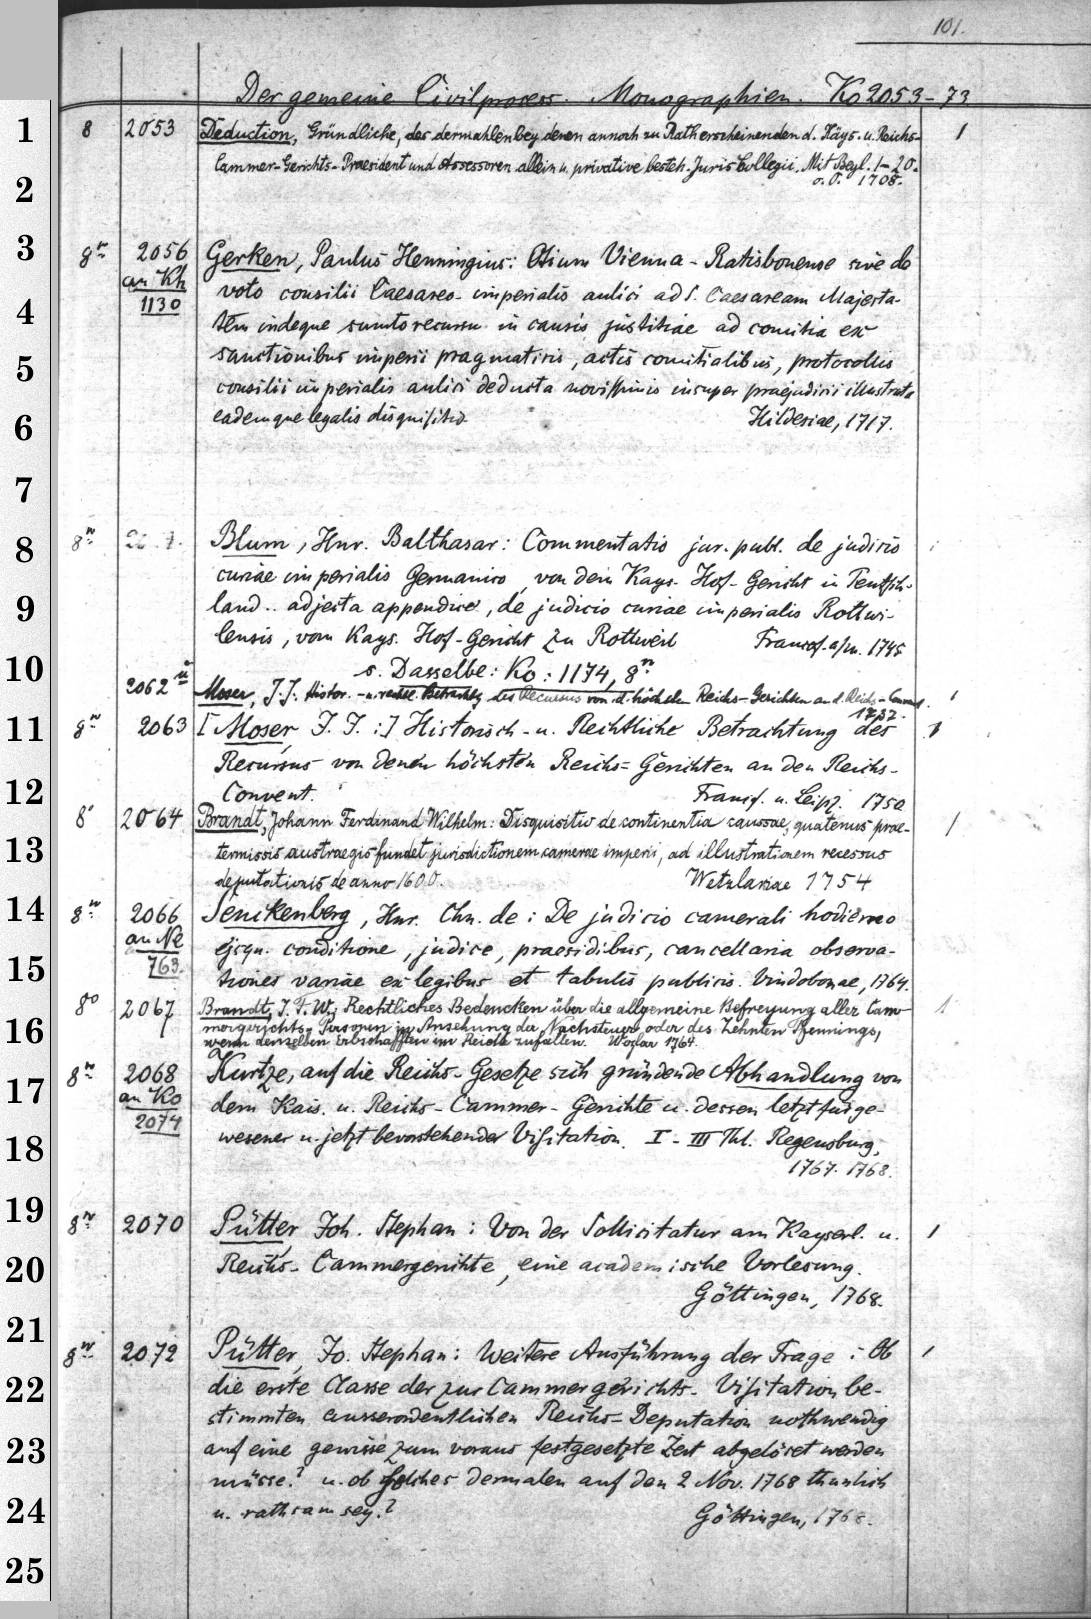 101.
Der gemeine Civilprocess. Monographien. Ko 2053-73
8 2053 Deduction, Gründliche, des dermahlen bey denen annoch zu Rath erscheinenden d. Käys. u. Reichs- 1
Cammer-Gerichts-Praesident und Assessoren allein u. privative besteh. Juris Collegii. Mit Beyl. 1-20.
o. O. 1708.
8n. 2056 Gerken, Paulus Henningius: Otium Vienna-Ratisbonense sive de
an Kh voto consilii Caesareo-imperialis aulici ad S. Caesaream Majesta-
1130 tem indeque sumto recursu in causis justitiae ad comitia ex
sanctionibus imperii pragmaticis, actis comitialibus, protocollis
consilii imperialis aulici deducta novissimis insuper praejudicii illustrata
eademque legalis disquisitio. Hildesiae, 1717.
8n. Blum, Hnr. Balthasar: Commentatio jur. publ. de judicio
curiae imperialis Germanico, von dem Kays. Hof-Gericht in Teutsch-
land.. adjecta appendice, de judicio curiae imperialis Rottwi-
lensis, vom Kays. Hof-Gericht zu Rottweil Francof. a/m. 1745
s. Dasselbe: Ko: 1174, 8n
2062 Moser, J. J. Histor.-u. rechtl. Betrachtg des Recursus von d. höchsten Reichs-Gerichten an d. Reichs-Convent. 1
1737.
8n. 2063 [Moser J. J. :] Historisch-u. Rechtliche Betrachtung des 1
Recursus von denen höchsten Reichs-Gerichten an den Reichs-
Convent. Francf. u. Leipz. 1750
8° 2064 Brandt, Johann Ferdinand Wilhelm: Disquisitio de continentia caussae, quatenus prae- 1
termissis austraegis fundet jurisdictionem camerae imperii, ad illustrationem recessus
deputationis de anno 1600. Wetzlariae 1754
8n. 2066 Senckenberg, Hnr. Chn. de: De judicio camerali hodierno
an Ne ejsqu. conditione, judice, praesidibus, cancellaria observa-
763. tiones variae ex legibus et tabulis publicis. Vindobonae, 1764.
8° 2067 Brandt, J. F. W.; Rechtliches Bedencken über die allgemeine Befreyung aller Cam- 1
mergerichts-Personen in Ansehung der Nachsteuer oder des Zehnten Pfennings,
wenn denselben Erbschafften im Reiche zufallen. Wezlar 1764.
8n. 2068 Kurtze, auf die Reichs-Gesetze sich gründende Abhandlung von
an Ko dem Kais. u. Reichs-Cammer-Gerichte u. dessen letzt für ge-
2074 wesener u. jetzt bevorstehender Visitation. I-III Thl. Regensburg,
1767. 1768.
8n. 2070 Pütter Joh. Stephan: Von der Sollicitatur am Kayserl. u. 1
Reichs-Cammergerichte, eine academische Vorlesung.
Göttingen, 1768.
8n. 2072 Pütter, Jo. Stephan: Weitere Ausführung der Frage: Ob 1
die erste Classe der zur Cammergerichts-Visitation be-
stimmten ausserordentlichen Reichs-Deputation nothwendig
auf eine gewisse zum voraus festgesetzte Zeit abgelöset werden
müsse? u. ob solches dermalen auf den 2 Nov. 1768 thunlich
u. rathsam sey.? Göttingen, 1768.
1
2
3
4
5
6
7
8
9
10
11
12
13
14
15
16
17
18
19
20
21
22
23
24
25